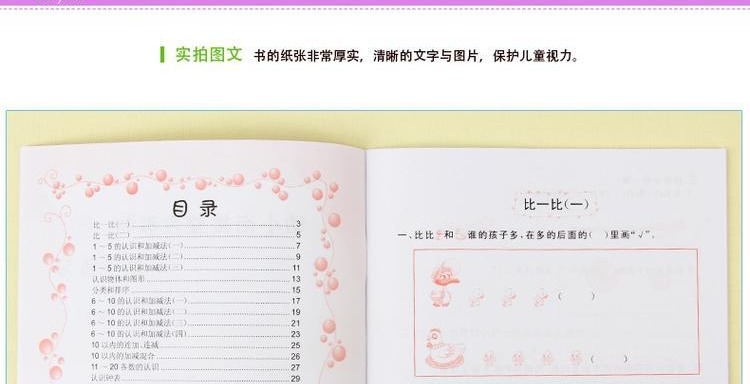 实拍图文 书的纸张非常厚实，清晰的文字与图片，保护儿童视力。
目录
比一比(一) 3
比一比(二) 5
1～5的认识和加减法(一) 7
1～5的认识和加减法(二) 9
1～5的认识和加减法(三) 11
认识物体和图形 13
分类和排序 15
6～10的认识和加减法(一) 17
6～10的认识和加减法(二) 19
6～10的认识和加减法(三) 21
6～10的认识和加减法(四) 23
10以内的连加、连减 25
10以内的加减混合 26
11～20各数的认识 27
认识钟表 29
比一比(一)
一、比比 和 谁的孩子多,在多的后面的( )里画“√”。
( )
( )